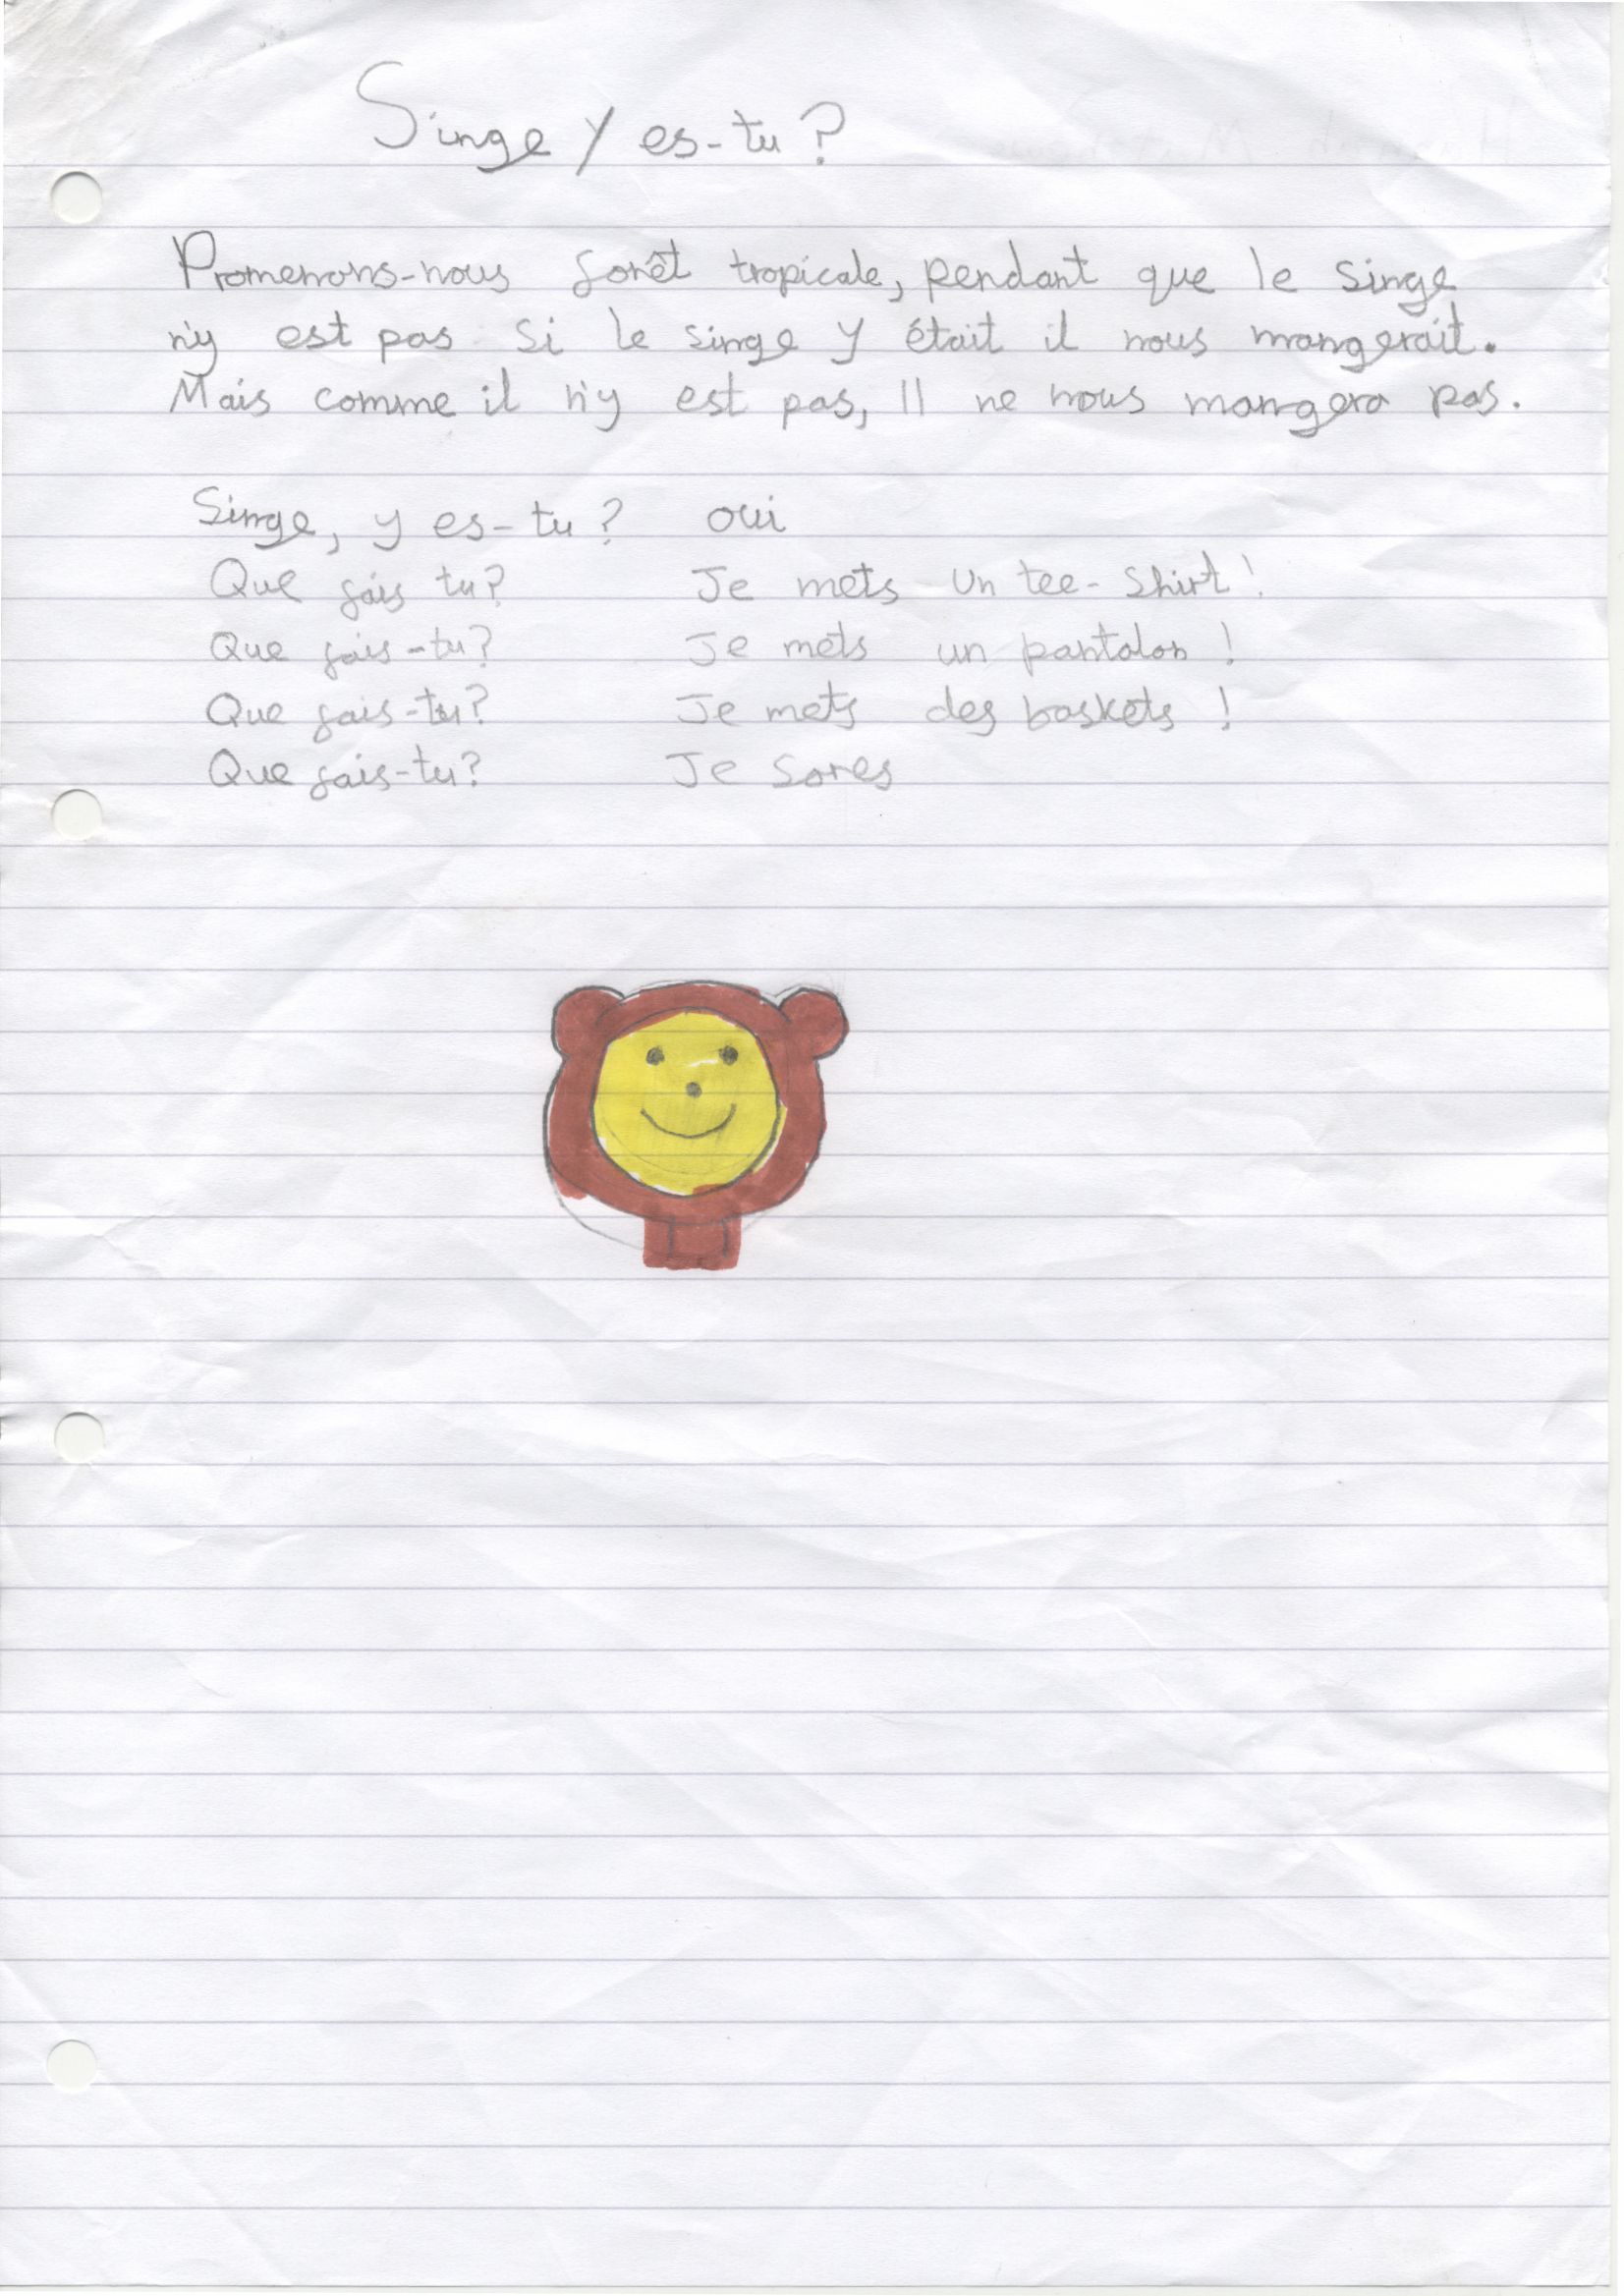 Singe y es-tu ?
Promenons-nous forêt tropicale, pendant que le singe
n'y est pas. Si le singe y était il nous mangerait.
Mais comme il n'y est pas, Il ne nous mangera pas.
Singe, y es-tu ? oui
Que fais tu? Je mets un tee-shirt !
Que fais-tu? Je mets un pantalon !
Que fais-tu? Je mets des baskets !
Que fais-tu? Je sores